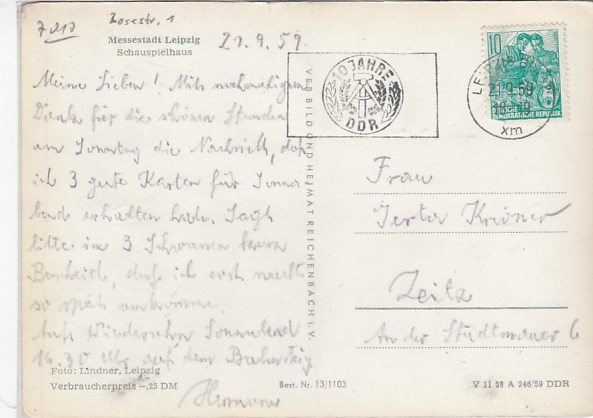 7010
Bosestr. 1
Messestadt Leipzig
Schauspielhaus
21.9.59
Meine Lieben! Mit nochmaligem
Dank für die schönen Stunden
am Sonntag die Nachricht, daß
ich 3 gute Karten für Sonna-
bend erhalten habe. Sagt
bitte im 3 Schwanen
Bescheid, daß ich erst nachts
so spät ankomme.
Auf Wiedersehn Sonnabend
16.30 Uhr auf dem Bahnsteig
Hermann
Foto: Lindner, Leipzig
Verbraucherpreis -,25 DM
Best. Nr. 13/1103
VEB BILD UND HEIMAT REICHENBACH I. V.
10 JAHRE
DDR
LEIPZIG
21.9.59
10
DEUTSCHE
DEMOKRATISCHE REPUBLIK
Frau
Zeitz
An der Stadtmauer 6
V 11 28 A 246/59 DDR